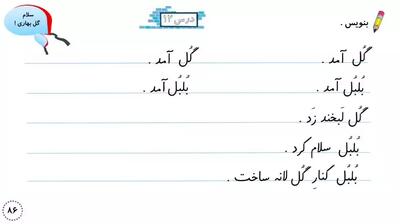 بنویس .
درس ۱۲
سلام
گل بهاری !
گُل آمد . گُل آمد .
بُلبُل آمد . بُلبُل آمد .
گُل لَبخند زَد .
بُلبُل سلام کرد .
بُلبُل کنارِ گُل لانه ساخت .
۸۶